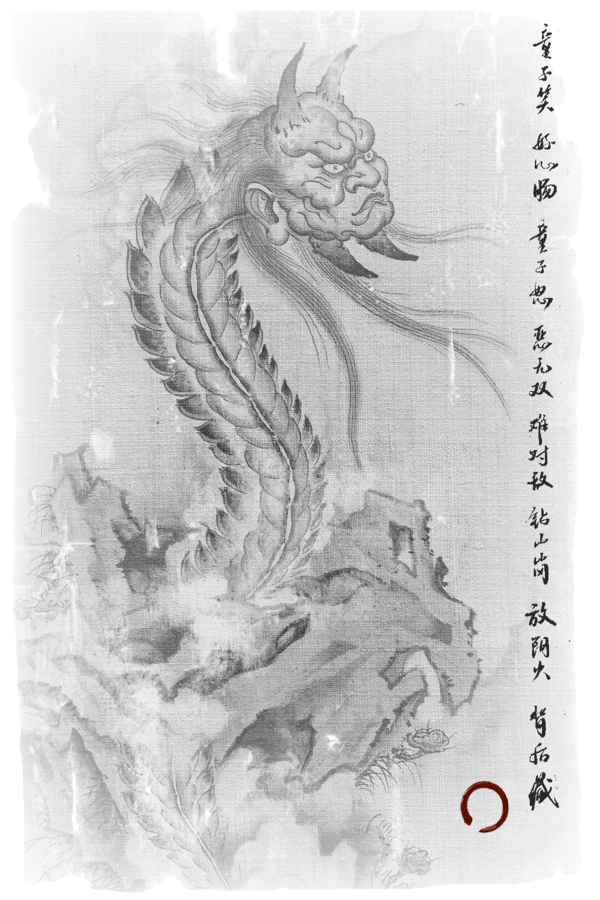 童子笑 好心肠 童子怒 恶无双 难对敌 钻山岗 放阴火 背后藏